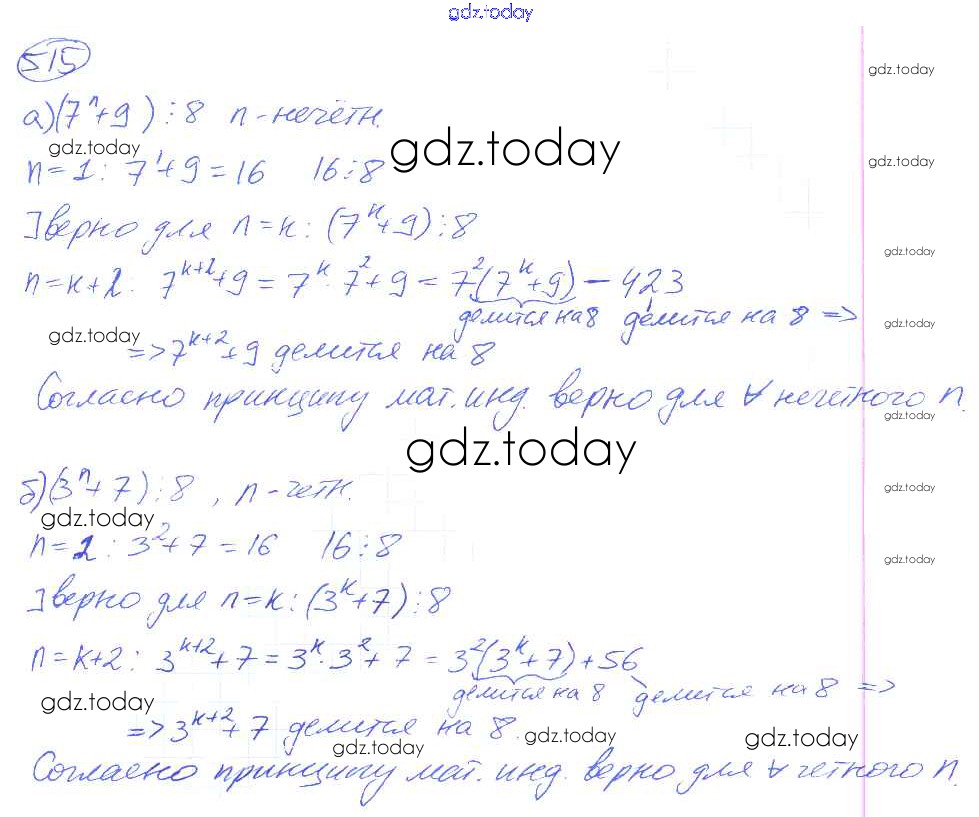 gdz.today
515
gdz.today
а) (7ⁿ+9) ⋮ 8 n - нечётн.
gdz.today gdz.today gdz.today
n=1: 7¹+9=16 16⋮8
]верно для n=k: (7ᵏ+9)⋮8
gdz.today
n=k+2: 7ᵏ⁺²+9 = 7ᵏ·7²+9 = 7²(7ᵏ+9) - 423
делится на 8 делится на 8 =>
gdz.today gdz.today
=> 7ᵏ⁺²+9 делится на 8
Согласно принципу мат. инд. верно для ∀ нечетного n.
gdz.today
gdz.today
б) (3ⁿ+7)⋮8, n - четн.
gdz.today
gdz.today
n=2: 3²+7=16 16⋮8
gdz.today
]верно для n=k: (3ᵏ+7)⋮8
n=k+2: 3ᵏ⁺²+7 = 3ᵏ·3²+7 = 3²(3ᵏ+7)+56
делится на 8 делится на 8 =>
gdz.today
=> 3ᵏ⁺²+7 делится на 8.
gdz.today gdz.today gdz.today
Согласно принципу мат. инд. верно для ∀ четного n.